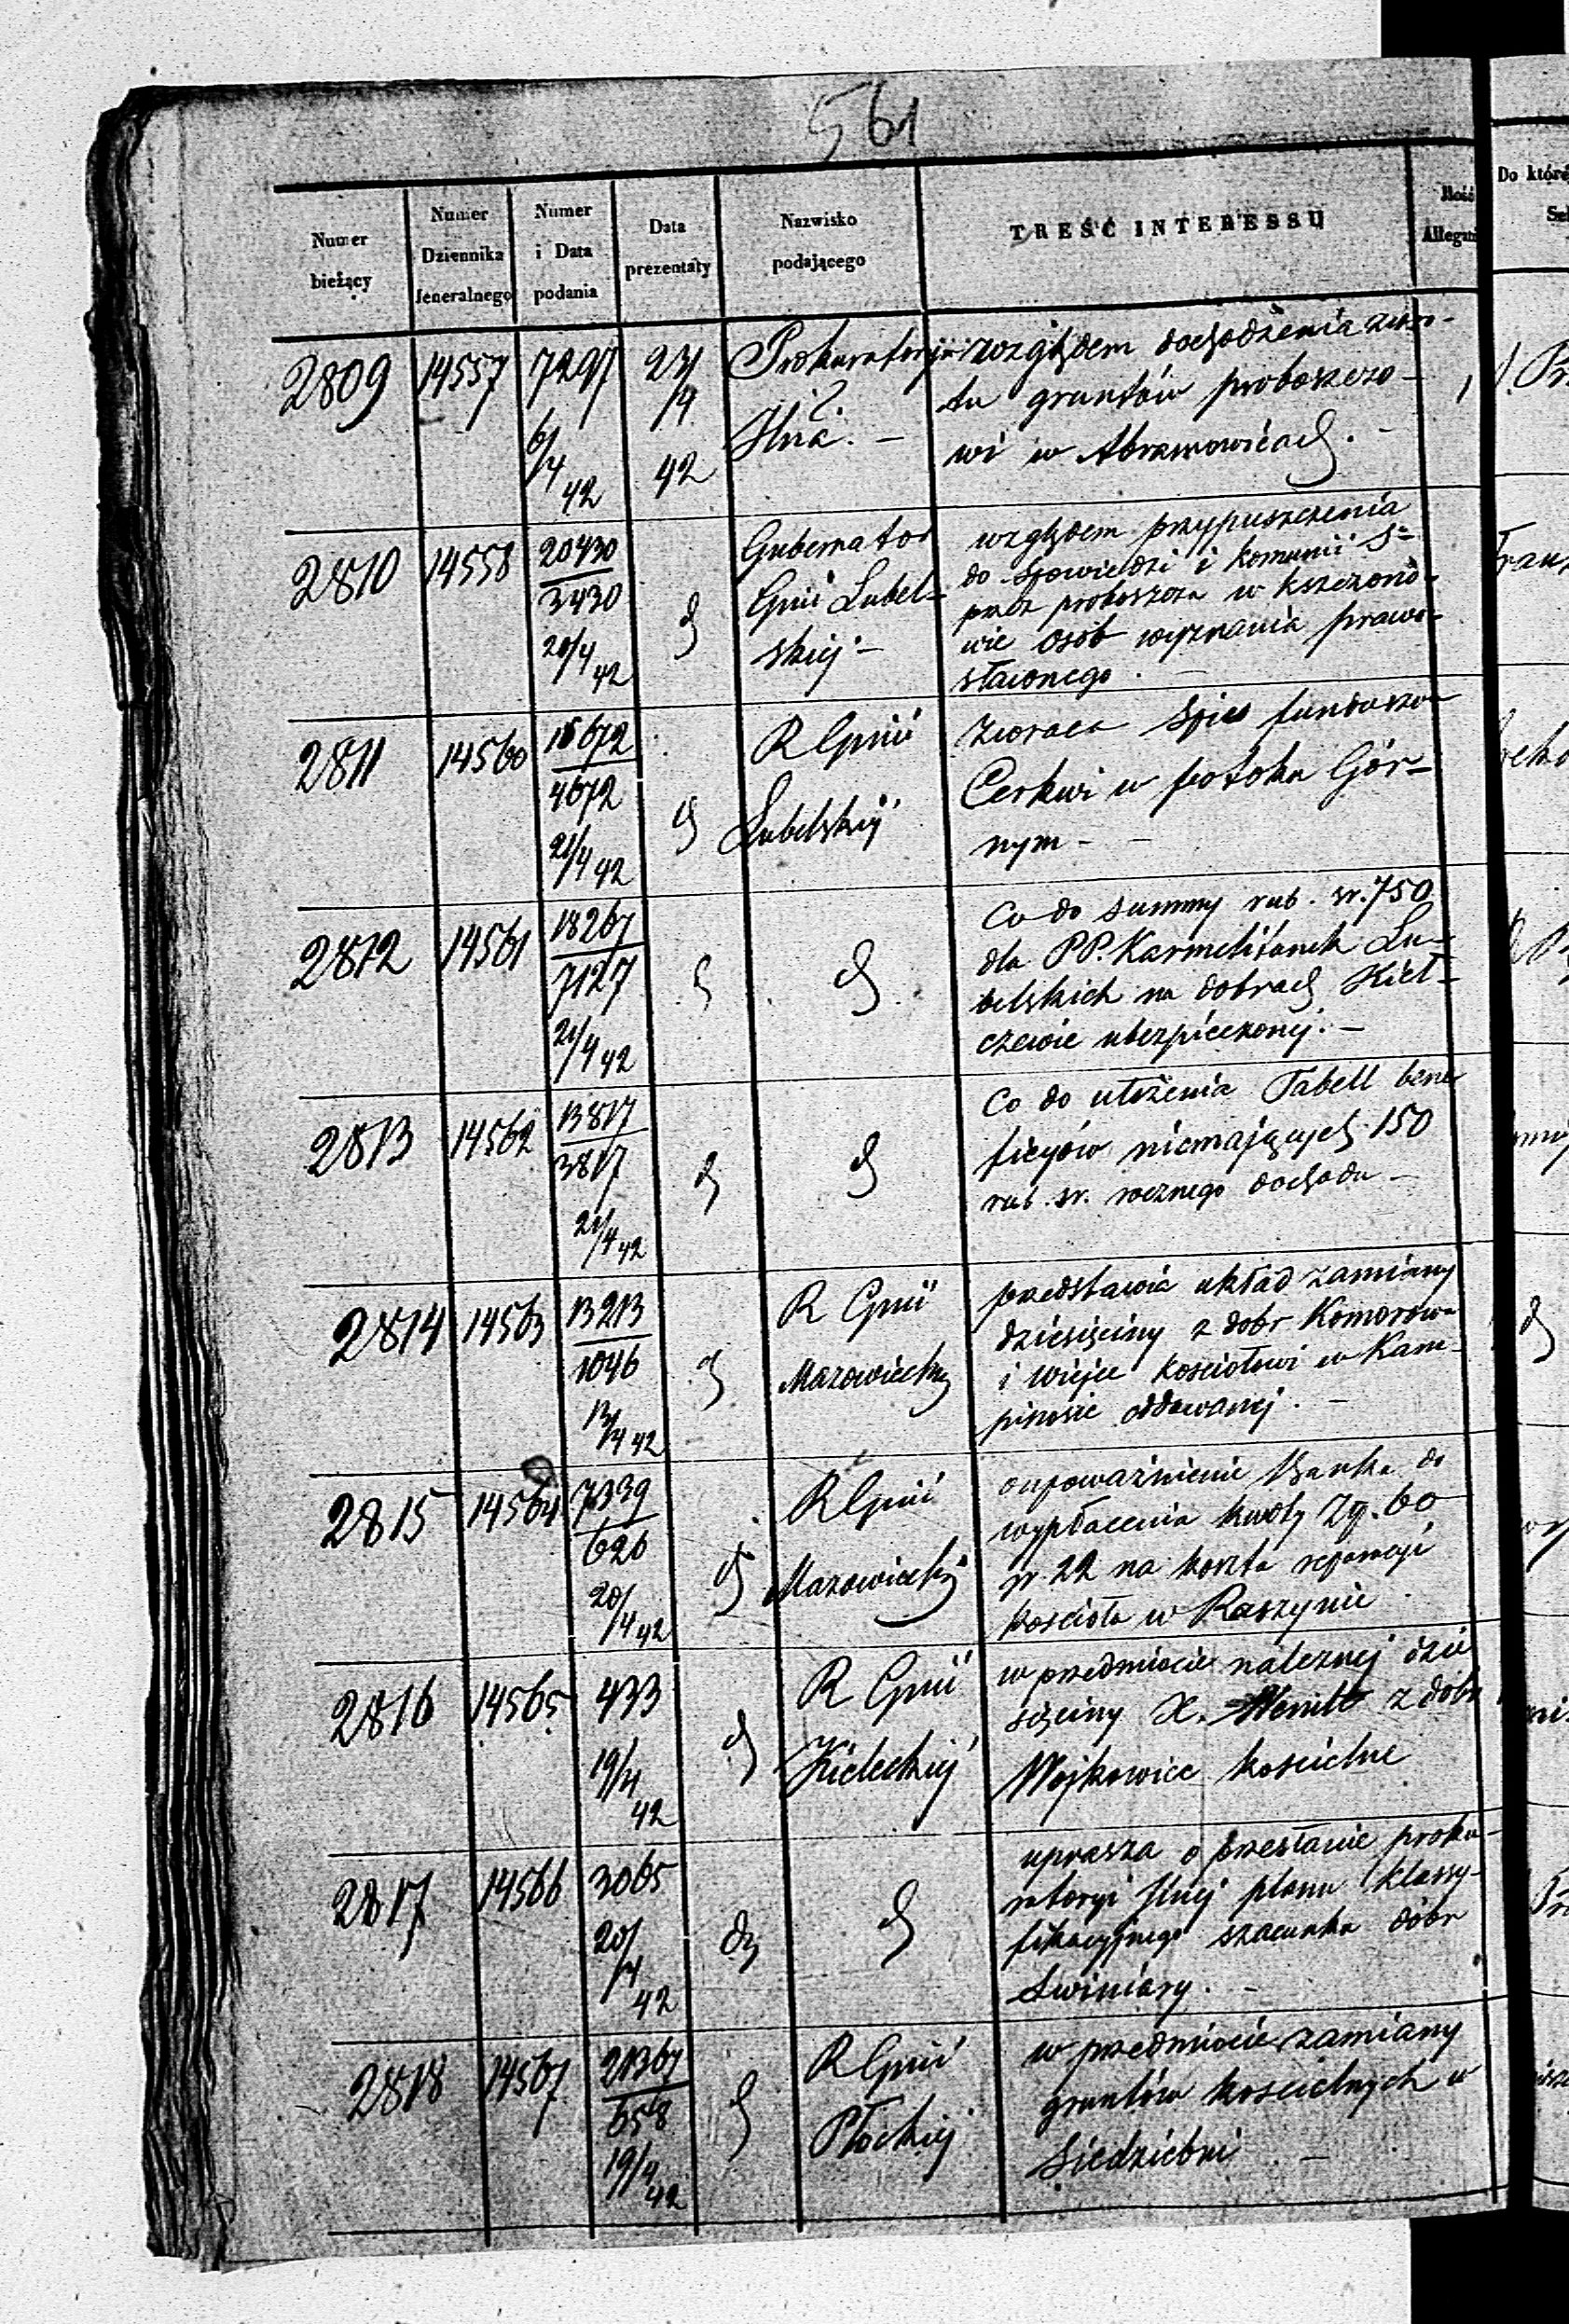 561
Numer bieżący
Numer Dziennika Jeneralnego
Numer i Data podania
Data prezentaty
Nazwisko podającego
TREŚĆ INTERESSU
Ilość
Do które
2809 14557 7297 6/4 42 23/4 42 Prokuratoryja
względem dochodzenia zwro-
tu gruntów proboszczo-
wi w Abramowicach. -
2810 14558 20430 3430 20/4 42 d Gubernator Gnii Lubel- skiej -
względem przypuszczenia
do spowiedzi i komunii S
przez proboszcza w Kszczono-
wie osób wyznania prawo-
sławnego. -
2811 14560 15672 4672 21/4 42 d R Gnii Lubelskiej
zwraca spis funduszu
Cerkwi w potoku Gór-
nym -
2812 14561 18267 7127 21/4 42 d d
Co do summy rub. sr. 750
dla PP. Karmelitanek Lu-
belskich na dobrach Kieł-
czewie ubezpieczonej. -
2813 14562 13817 3817 21/4 42 d d
Co do ułożenia Tabell bene
ficyów niemających 150
rub. sr. rocznego dochodu -
2814 14563 13213 1046 13/4 42 d R Gnii Mazowieckiej
przedstawia układ zamiany
dziesięciny z dobr Komorowa
i wiejce kościołowi w Kam-
pinosie oddawanej. -
2815 14564 7339 626 20/4 42 d R Gnii Mazowieckiej
oupoważnienie Banku do
wypłacenia kwoty Zp. 60
gr. 22 na koszta reparacyi
kościoła w Raszynie
2816 14565 433 19/4 42 d R Gnii Kieleckiej
w przedmiocie należnej dzie
sięciny X. z dobr
Wojkowice kościelne
2817 14566 3065 20/4 42 d d
uprasza o przesłanie proku-
ratoryi Jlnej planu klassy-
fikacyjnego szacunku dóbr
Swiniary. -
2818 14567 21367 658 19/4 42 d R Gnii Płockiej
w przedmiocie zamiany
gruntów kościelnych w
Siedziebni -